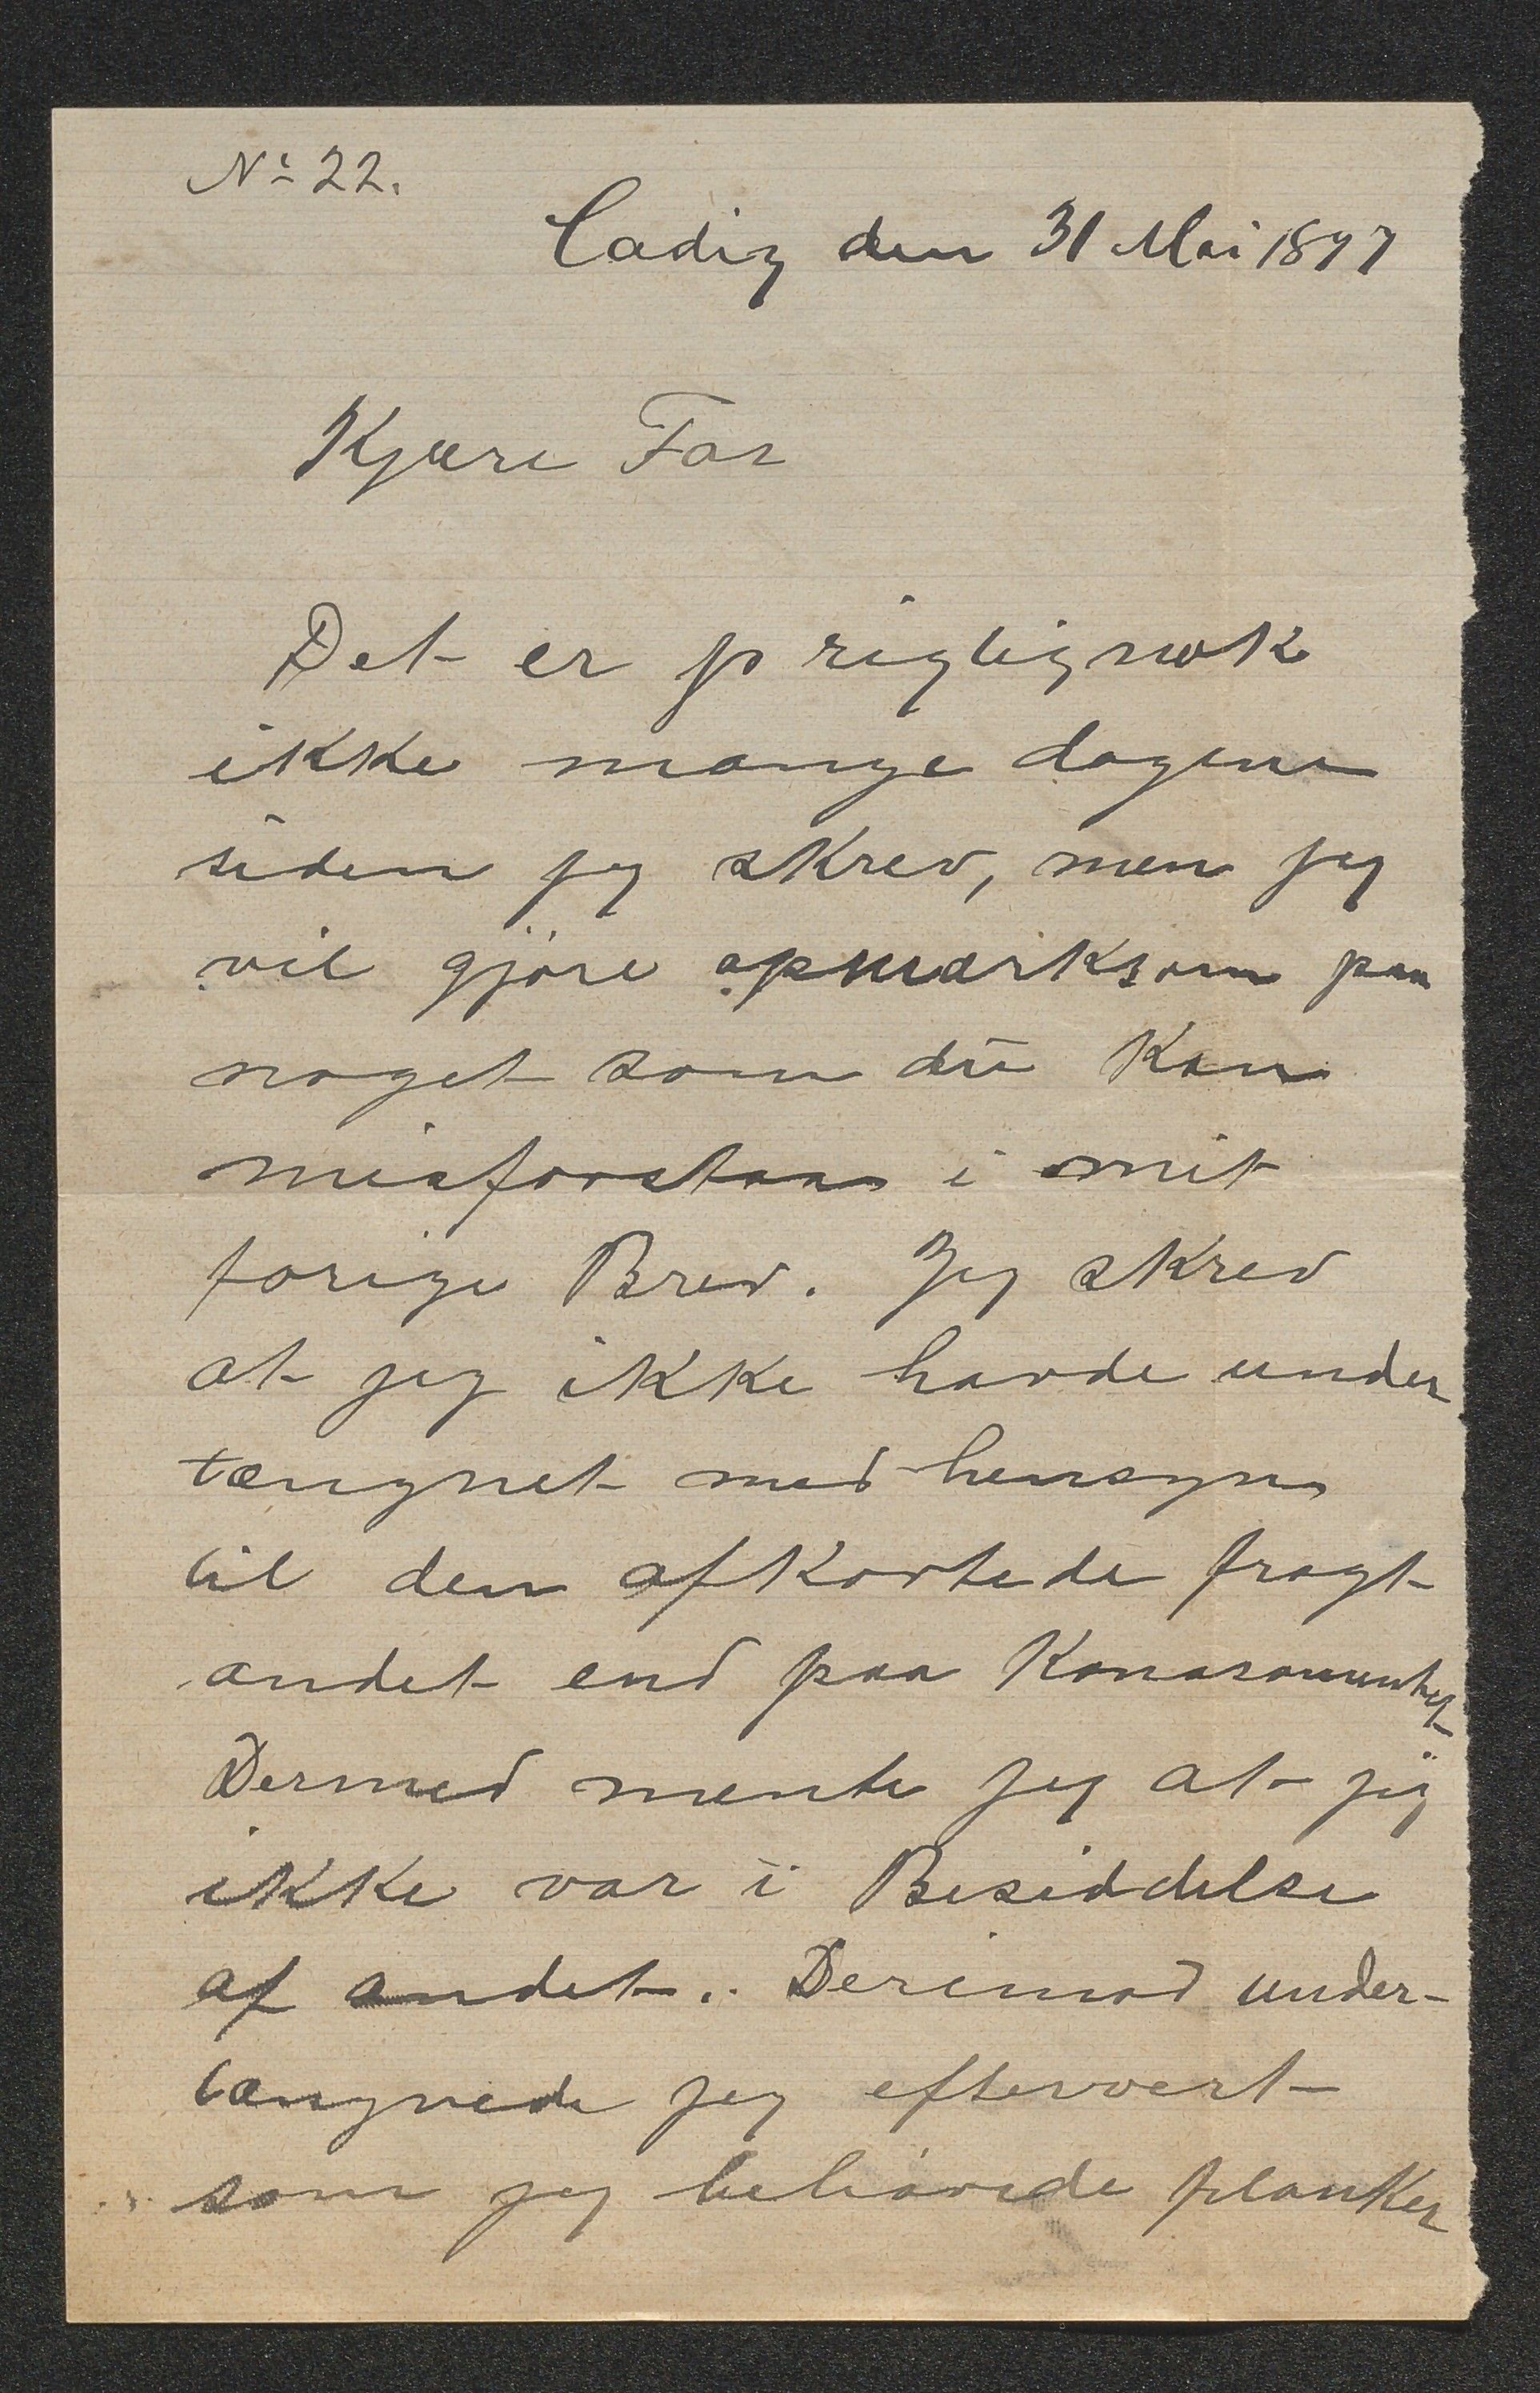 No 22.
Cadiz den 31 Mai 1897
Kjære Far
Det er jo rigtignok
ikke mange dagene
siden jeg skrev, men jeg
vil gjöre opmærksom paa
noget som du kan
misforstaa i mit
forige Brev. Jeg skrev
at jeg ikke havde under
tængnet med hensyn
til den afkortede fragt
andet end paa
Dermed mente jeg at jeg
ikke var i Besiddelse
af andet. Derimod under-
tængnede jeg eftervert
som jeg behövede planker